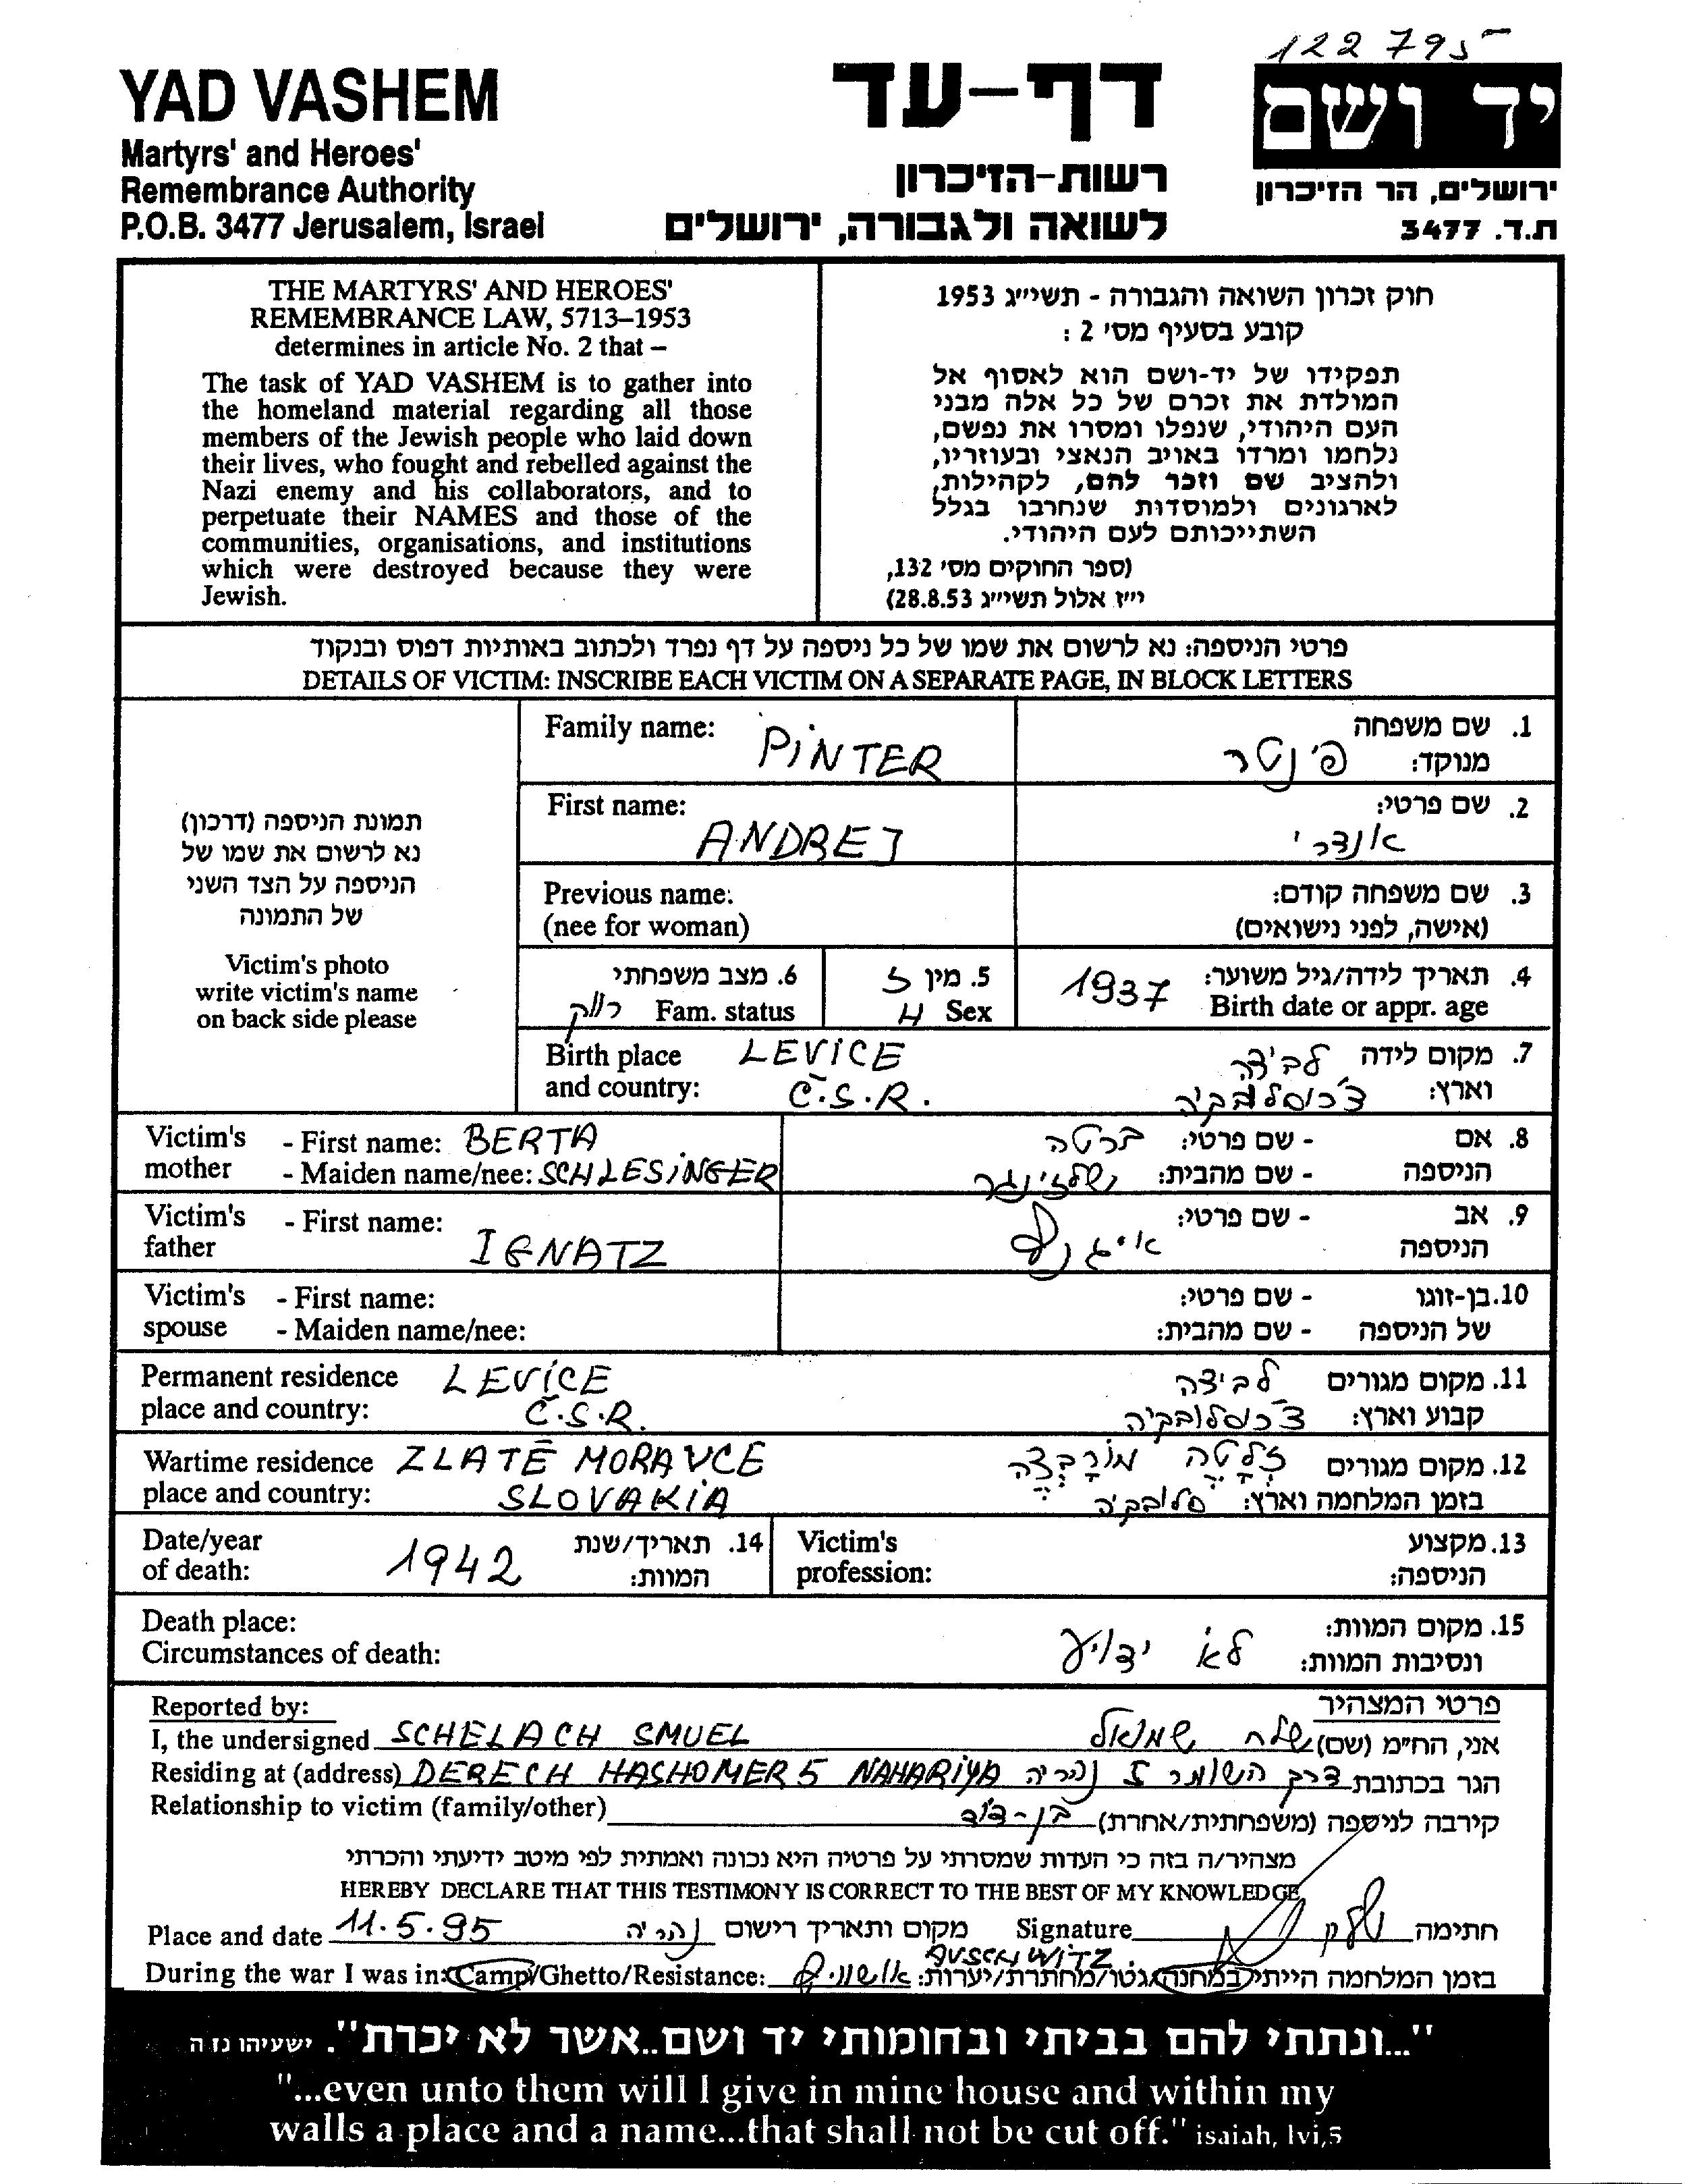 122 795
YAD VASHEM
Martyrs' and Heroes'
Remembrance Authority
P.O.B. 3477 Jerusalem, Israel
דף-עד
רשות-הזיכרון
לשואה ולגבורה, ירושלים
יד ושם
ירושלים, הר הזיכרון
ת.ד. 3477
THE MARTYRS' AND HEROES'
REMEMBRANCE LAW, 5713–1953
determines in article No. 2 that –
The task of YAD VASHEM is to gather into
the homeland material regarding all those
members of the Jewish people who laid down
their lives, who fought and rebelled against the
Nazi enemy and his collaborators, and to
perpetuate their NAMES and those of the
communities, organisations, and institutions
which were destroyed because they were
Jewish.
חוק זכרון השואה והגבורה - תשי״ג 1953
קובע בסעיף מס׳ 2 :
תפקידו של יד-ושם הוא לאסוף אל
המולדת את זכרם של כל אלה מבני
העם היהודי, שנפלו ומסרו את נפשם,
נלחמו ומרדו באויב הנאצי ובעוזריו,
ולהציב שם וזכר להם, לקהילות,
לארגונים ולמוסדות שנחרבו בגלל
השתייכותם לעם היהודי.
(ספר החוקים מס׳ 132,
י״ז אלול תשי״ג 28.8.53)
פרטי הניספה: נא לרשום את שמו של כל ניספה על דף נפרד ולכתוב באותיות דפוס ובנקוד
DETAILS OF VICTIM: INSCRIBE EACH VICTIM ON A SEPARATE PAGE, IN BLOCK LETTERS
תמונת הניספה (דרכון)
נא לרשום את שמו של
הניספה על הצד השני
של התמונה
Victim's photo
write victim's name
on back side please
Family name: PINTER
1. שם משפחה
מנוקד: פינטר
First name: ANDREJ
2. שם פרטי: אנדרי
Previous name:
(nee for woman)
3. שם משפחה קודם:
(אישה, לפני נישואים)
6. מצב משפחתי
Fam. status רווק
5. מין
Sex
4. תאריך לידה/גיל משוער:
Birth date or appr. age 1937
Birth place LEVICE
and country: Č.S.R.
7. מקום לידה לביצה
וארץ: צ׳כוסלובקיה
Victim's - First name: BERTA
mother - Maiden name/nee: SCHLESINGER
8. אם - שם פרטי: ברטה
הניספה - שם מהבית: שלזינגר
Victim's - First name: IGNATZ
father
9. אב - שם פרטי: איגנץ
הניספה
Victim's - First name:
spouse - Maiden name/nee:
10. בן-זוגו - שם פרטי:
של הניספה - שם מהבית:
Permanent residence LEVICE
place and country: Č.S.R.
11. מקום מגורים לביצה
קבוע וארץ: צ׳כוסלובקיה
Wartime residence ZLATÉ MORAVCE
place and country: SLOVAKIA
12. מקום מגורים זלטה מורבצה
בזמן המלחמה וארץ: סלובקיה
Date/year
of death: 1942
14. תאריך/שנת
המוות:
Victim's
profession:
13. מקצוע
הניספה:
Death place:
Circumstances of death:
15. מקום המוות:
ונסיבות המוות: לא ידוע
Reported by:
פרטי המצהיר
I, the undersigned SCHELACH SMUEL
אני, הח״מ (שם) שלח שמואל
Residing at (address) DERECH HASHOMER 5 NAHARIYA
הגר בכתובת דרך השומר 5 נהריה
Relationship to victim (family/other)
קירבה לניספה (משפחתית/אחרת) בן-דוד
מצהיר/ה בזה כי העדות שמסרתי על פרטיה היא נכונה ואמתית לפי מיטב ידיעתי והכרתי
HEREBY DECLARE THAT THIS TESTIMONY IS CORRECT TO THE BEST OF MY KNOWLEDGE
Place and date 11.5.95
מקום ותאריך רישום נהריה
Signature
חתימה
AUSCHWITZ
During the war I was in: Camp/Ghetto/Resistance:
בזמן המלחמה הייתי במחנה/גטו/מחתרת/יערות: אושוויץ
"...ונתתי להם בביתי ובחומותי יד ושם..אשר לא יכרת". ישעיהו נו ה
"...even unto them will I give in mine house and within my
walls a place and a name...that shall not be cut off." isaiah, lvi,5